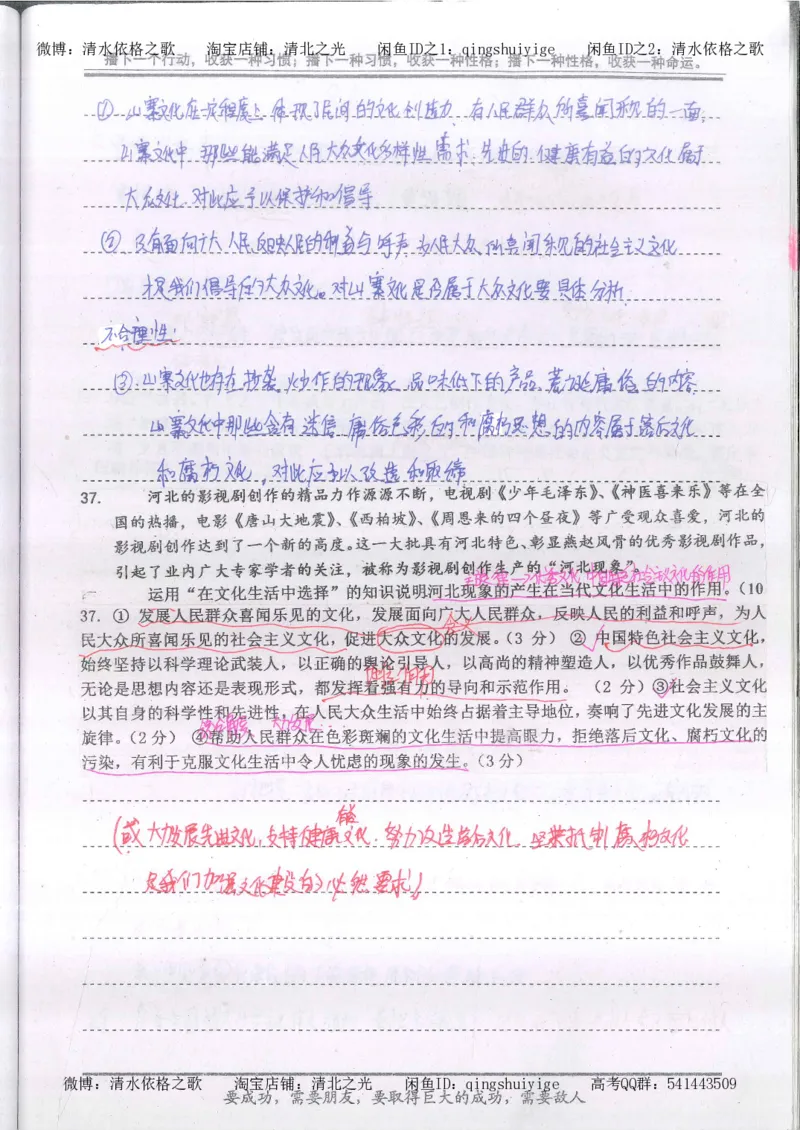 微博：清水依格之歌 淘宝店铺：清北之光 闲鱼ID之1：qingshuiyige 闲鱼ID之2：清水依格之歌
播下一个行动，收获一种习惯；播下一种习惯，收获一种性格；播下一种性格，收获一种命运。
① 山寨文化在一定程度上体现了民间的文化创造力，有人民群众所喜闻乐见的一面，
山寨文化中，那些能满足人民大众文化多样性需求，先进的、健康有益的文化属于
大众文化，对此应予以保护和倡导
② 只有面向广大人民，反映人民的利益与呼声，为人民大众所喜闻乐见的社会主义文化
才是我们倡导的大众文化。对山寨文化是否属于大众文化要具体分析.
不合理性：
③.山寨文化也存在抄袭、炒作的现象、品味低下的产品、荒诞庸俗的内容.
山寨文化中那些含有迷信、庸俗色彩的和腐朽思想的内容属于落后文化
和腐朽文化，对此应予以改造和取缔
37. 河北的影视剧创作的精品力作源源不断，电视剧《少年毛泽东》、《神医喜来乐》等在全
国的热播，电影《唐山大地震》、《西柏坡》、《周恩来的四个昼夜》等广受观众喜爱，河北的
影视剧创作达到了一个新的高度。这一大批具有河北特色、彰显燕赵风骨的优秀影视剧作品，
引起了业内广大专家学者的关注，被称为影视剧创作生产的“河北现象”。
运用“在文化生活中选择”的知识说明河北现象的产生在当代文化生活中的作用。（10
37. ① 发展人民群众喜闻乐见的文化，发展面向广大人民群众，反映人民的利益和呼声，为人
民大众所喜闻乐见的社会主义文化，促进大众文化的发展。（3 分） ② 中国特色社会主义文化，
始终坚持以科学理论武装人，以正确的舆论引导人，以高尚的精神塑造人，以优秀作品鼓舞人，
无论是思想内容还是表现形式，都发挥着强有力的导向和示范作用。 （2 分）③社会主义文化
以其自身的科学性和先进性，在人民大众生活中始终占据着主导地位，奏响了先进文化发展的主
旋律。（2 分） ④帮助人民群众在色彩斑斓的文化生活中提高眼力，拒绝落后文化、腐朽文化的
污染，有利于克服文化生活中令人忧虑的现象的发生。（3 分）
（或 大力发展先进文化，支持健康有益文化，努力改造落后文化，坚决抵制腐朽文化
是我们加强文化建设的必然要求）
微博：清水依格之歌 淘宝店铺：清北之光 闲鱼ID：qingshuiyige 高考QQ群：541443509
要成功，需要朋友，要取得巨大的成功，需要敌人